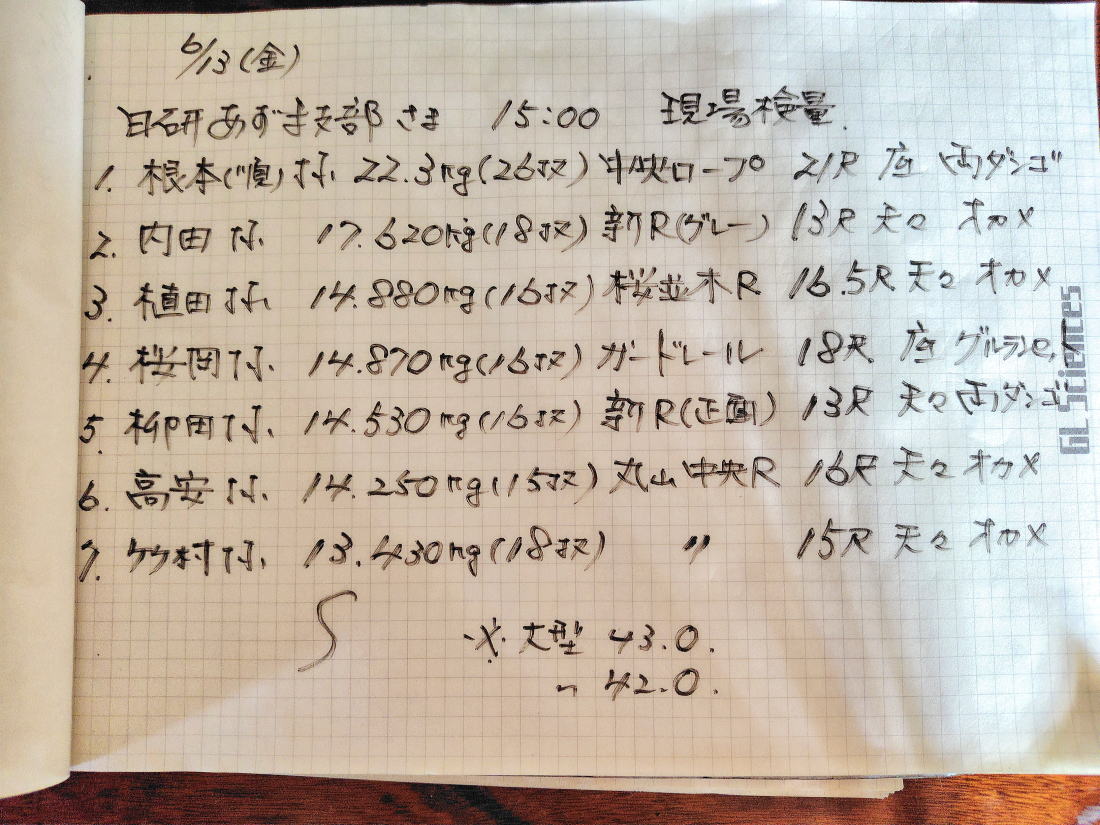 6/13(金)
日研あずま支部さま 15:00 現場検量.
1. 根本(順)さん 22.3kg(26枚) 中央ロープ 21尺 底 両ダンゴ
2. 内田さん 17.620kg(18枚) 新R(グレー) 13尺 天々 オカメ
3. 植田さん 14.880kg(16枚) 桜並木R 16.5尺 天々 オカメ
4. 桜岡さん 14.870kg(16枚) ガードレール 18尺 底 グルテンセット
5. 柳田さん 14.530kg(16枚) 新R(正面) 13尺 天々 両ダンゴ
6. 高安さん 14.250kg(15枚) 丸山中央R 16尺 天々 オカメ
7. 竹村さん 13.430kg(18枚) 〃 15尺 天々 オカメ
※大型 43.0.
〃 42.0.
GL Sciences